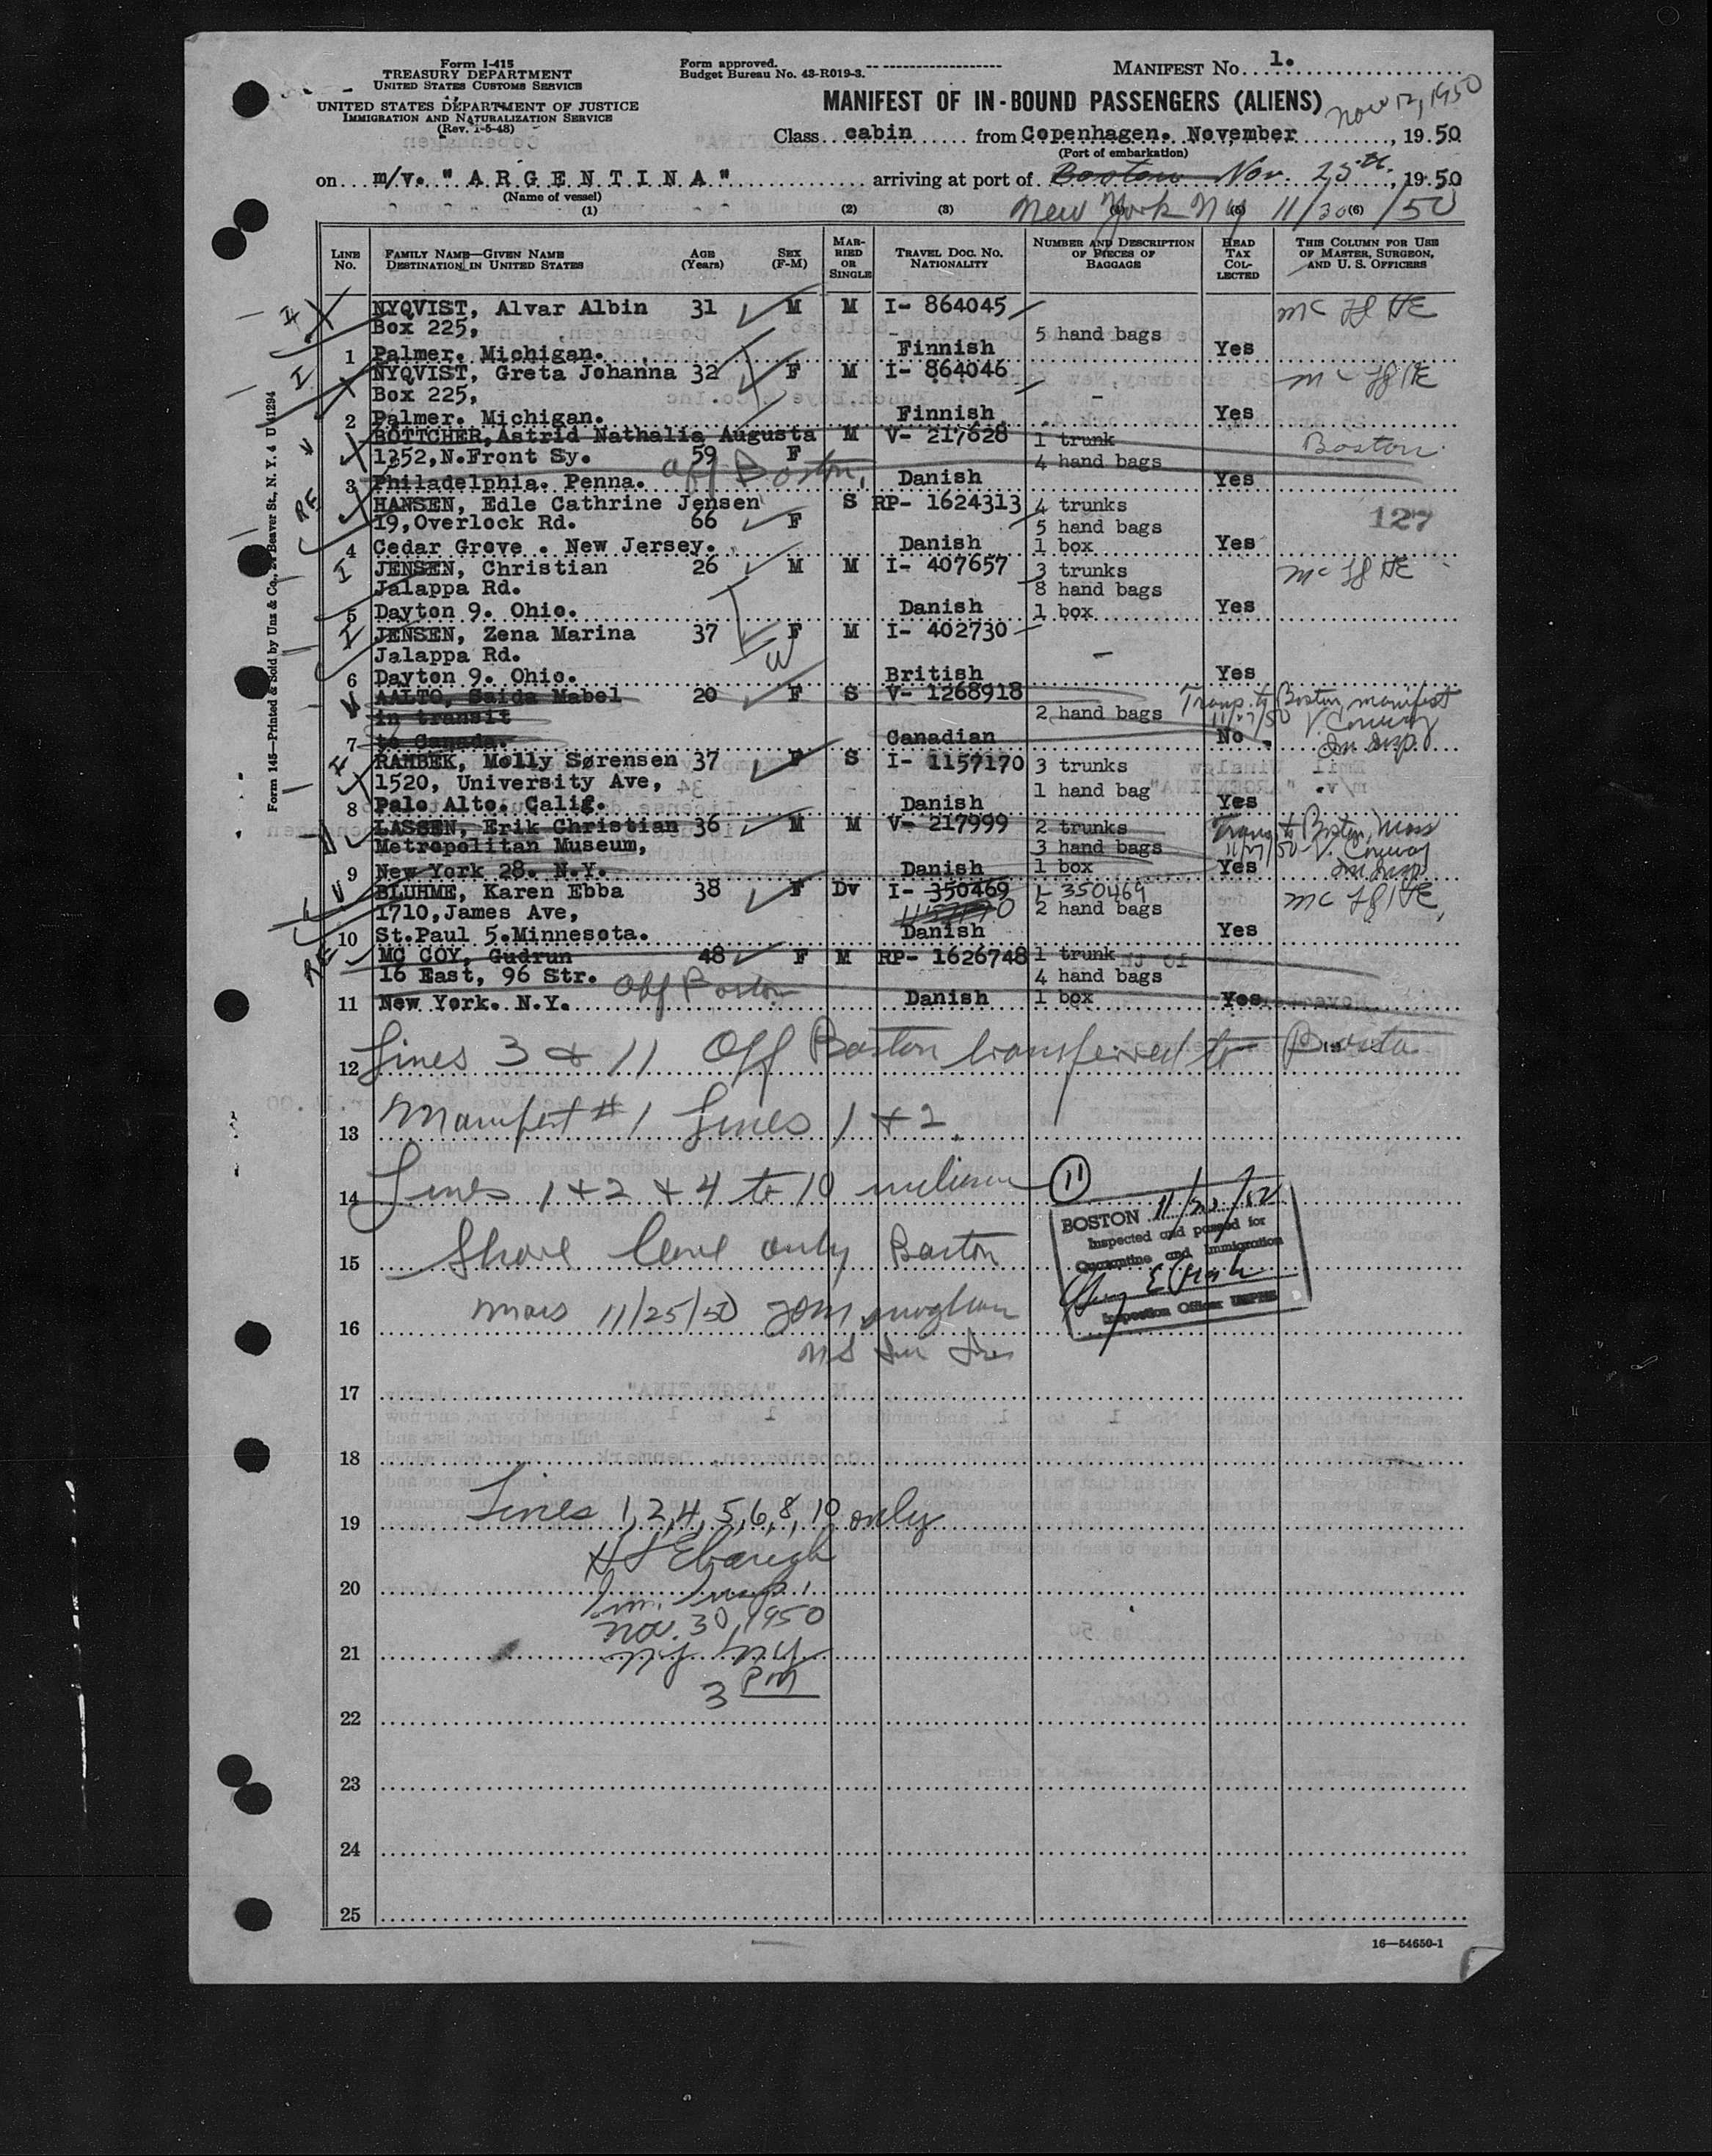 Form I-415
TREASURY DEPARTMENT
UNITED STATES CUSTOMS SERVICE
UNITED STATES DEPARTMENT OF JUSTICE
IMMIGRATION AND NATURALIZATION SERVICE
(Rev. 1-5-48)
Form approved.
Budget Bureau No. 43-R019-3.
MANIFEST No. 1.
MANIFEST OF IN-BOUND PASSENGERS (ALIENS)
Nov 12, 1950
Class cabin from Copenhagen. November, 19 50
(Port of embarkation)
on m/v. "ARGENTINA" arriving at port of Boston Nov. 25th, 19 50
(Name of vessel)
New York NY 11/30/50
(1) (2) (3) (5) (6)
LINE No. FAMILY NAME—GIVEN NAME DESTINATION IN UNITED STATES AGE (Years) SEX (F-M) MARRIED OR SINGLE TRAVEL DOC. NO. NATIONALITY NUMBER AND DESCRIPTION OF PIECES OF BAGGAGE HEAD TAX COLLECTED THIS COLUMN FOR USE OF MASTER, SURGEON, AND U. S. OFFICERS
NYQVIST, Alvar Albin 31 M M I- 864045
Box 225, 5 hand bags
1 Palmer. Michigan. Finnish Yes
NYQVIST, Greta Johanna 32 F M I- 864046
Box 225, -
2 Palmer. Michigan. Finnish Yes
BÖTTCHER, Astrid Nathalia Augusta M V- 217628 1 trunk Boston
1252, N.Front Sy. 59 F 4 hand bags
3 Philadelphia. Penna. Off Boston, Danish Yes
HANSEN, Edle Cathrine Jensen S RP- 1624313 4 trunks
19, Overlock Rd. 66 F 5 hand bags 127
4 Cedar Grove. New Jersey. Danish 1 box Yes
JENSEN, Christian 26 M M I- 407657 3 trunks
Jalappa Rd. 8 hand bags
5 Dayton 9. Ohio. Danish 1 box Yes
JENSEN, Zena Marina 37 F M I- 402730
Jalappa Rd. -
6 Dayton 9. Ohio. British Yes
AALTO, Saida Mabel 20 F S V- 1268918 Transp. to Boston, manifest
in transit 2 hand bags 11/27/50 V. Conway
7 to Canada. Canadian No. Im Insp.
RAMBEK, Molly Sørensen 37 F S I- 1157170 3 trunks
1520, University Ave, 1 hand bag
8 Palo Alto. Calif. Danish Yes
LASSEN, Erik Christian 36 M M V- 217999 2 trunks Transp. to Boston, Mass
Metropolitan Museum, 3 hand bags 11/27/50 V. Conway
9 New York 28. N.Y. Danish 1 box Yes Im Insp
BLUHME, Karen Ebba 38 F Dv I- 350469 I- 350469
1710, James Ave, 2 hand bags
10 St.Paul 5.Minnesota. Danish Yes
MC COY, Gudrun 48 F M RP- 1626748 1 trunk
16 East, 96 Str. 4 hand bags
11 New York. N.Y. Off Boston Danish 1 box Yes
12 Lines 3 & 11 Off Boston transferred to Boston
13 Manifest #1 Lines 1 & 2.
14 Lines 1 & 2 & 4 to 10 inclusive (11)
15 Shore leave only Boston
16 Mass 11/25/50
17
18
19 Lines 1,2,4,5,6,8,10 only
H J Ebaugh
20 Im. Insp.
Nov. 30, 1950
21 N.Y.
3 PM
22
23
24
25
BOSTON
Inspected and passed for
Quarantine and Immigration
Inspection Officer USPHS
Form 145—Printed & Sold by Unz & Co., 24 Beaver St., N. Y. 4 U 41294
16—54650-1